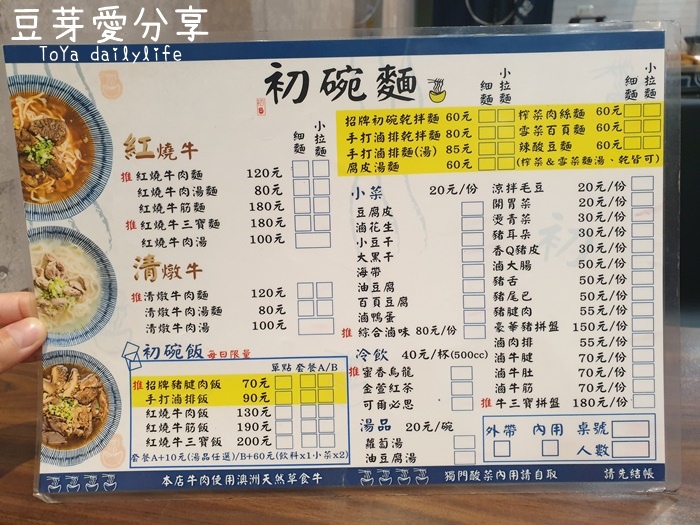 豆芽愛分享
ToYa dailylife
初碗麵
紅燒牛
細麵 小拉麵
推 紅燒牛肉麵 120元
紅燒牛肉湯麵 80元
紅燒牛筋麵 180元
推 紅燒牛三寶麵 180元
紅燒牛肉湯 100元
清燉牛
推 清燉牛肉麵 120元
清燉牛肉湯麵 80元
清燉牛肉湯 100元
初碗飯 每日限量
單點 套餐A/B
推 招牌豬腱肉飯 70元
手打滷排飯 90元
紅燒牛肉飯 130元
紅燒牛筋飯 190元
紅燒牛三寶飯 200元
套餐A+10元(湯品任選)/B+60元(飲料x1小菜x2)
細麵 小拉麵
招牌初碗乾拌麵 60元
手打滷排乾拌麵 80元
手打滷排麵(湯) 85元
腐皮湯麵 60元
細麵 小拉麵
榨菜肉絲麵 60元
雪菜百頁麵 60元
辣酸豆麵 60元
(榨菜&雪菜麵湯、乾皆可)
小菜 20元/份
豆腐皮
滷花生
小豆干
大黑干
海帶
油豆腐
百頁豆腐
滷鴨蛋
推 綜合滷味 80元/份
冷飲 40元/杯(500cc)
推 蜜香烏龍
金萱紅茶
可爾必思
湯品 20元/碗
蘿蔔湯
油豆腐湯
涼拌毛豆 20元/份
開胃菜 20元/份
燙青菜 30元/份
豬耳朵 30元/份
香Q豬皮 30元/份
滷大腸 50元/份
豬舌 50元/份
豬尾巴 50元/份
豬腱肉 55元/份
豪華豬拼盤 150元/份
滷肉排 55元/份
滷牛腱 70元/份
滷牛肚 70元/份
滷牛筋 70元/份
推 牛三寶拼盤 180元/份
外帶 內用 桌號
人數
本店牛肉使用澳洲天然草食牛
獨門酸菜內用請自取
請先結帳